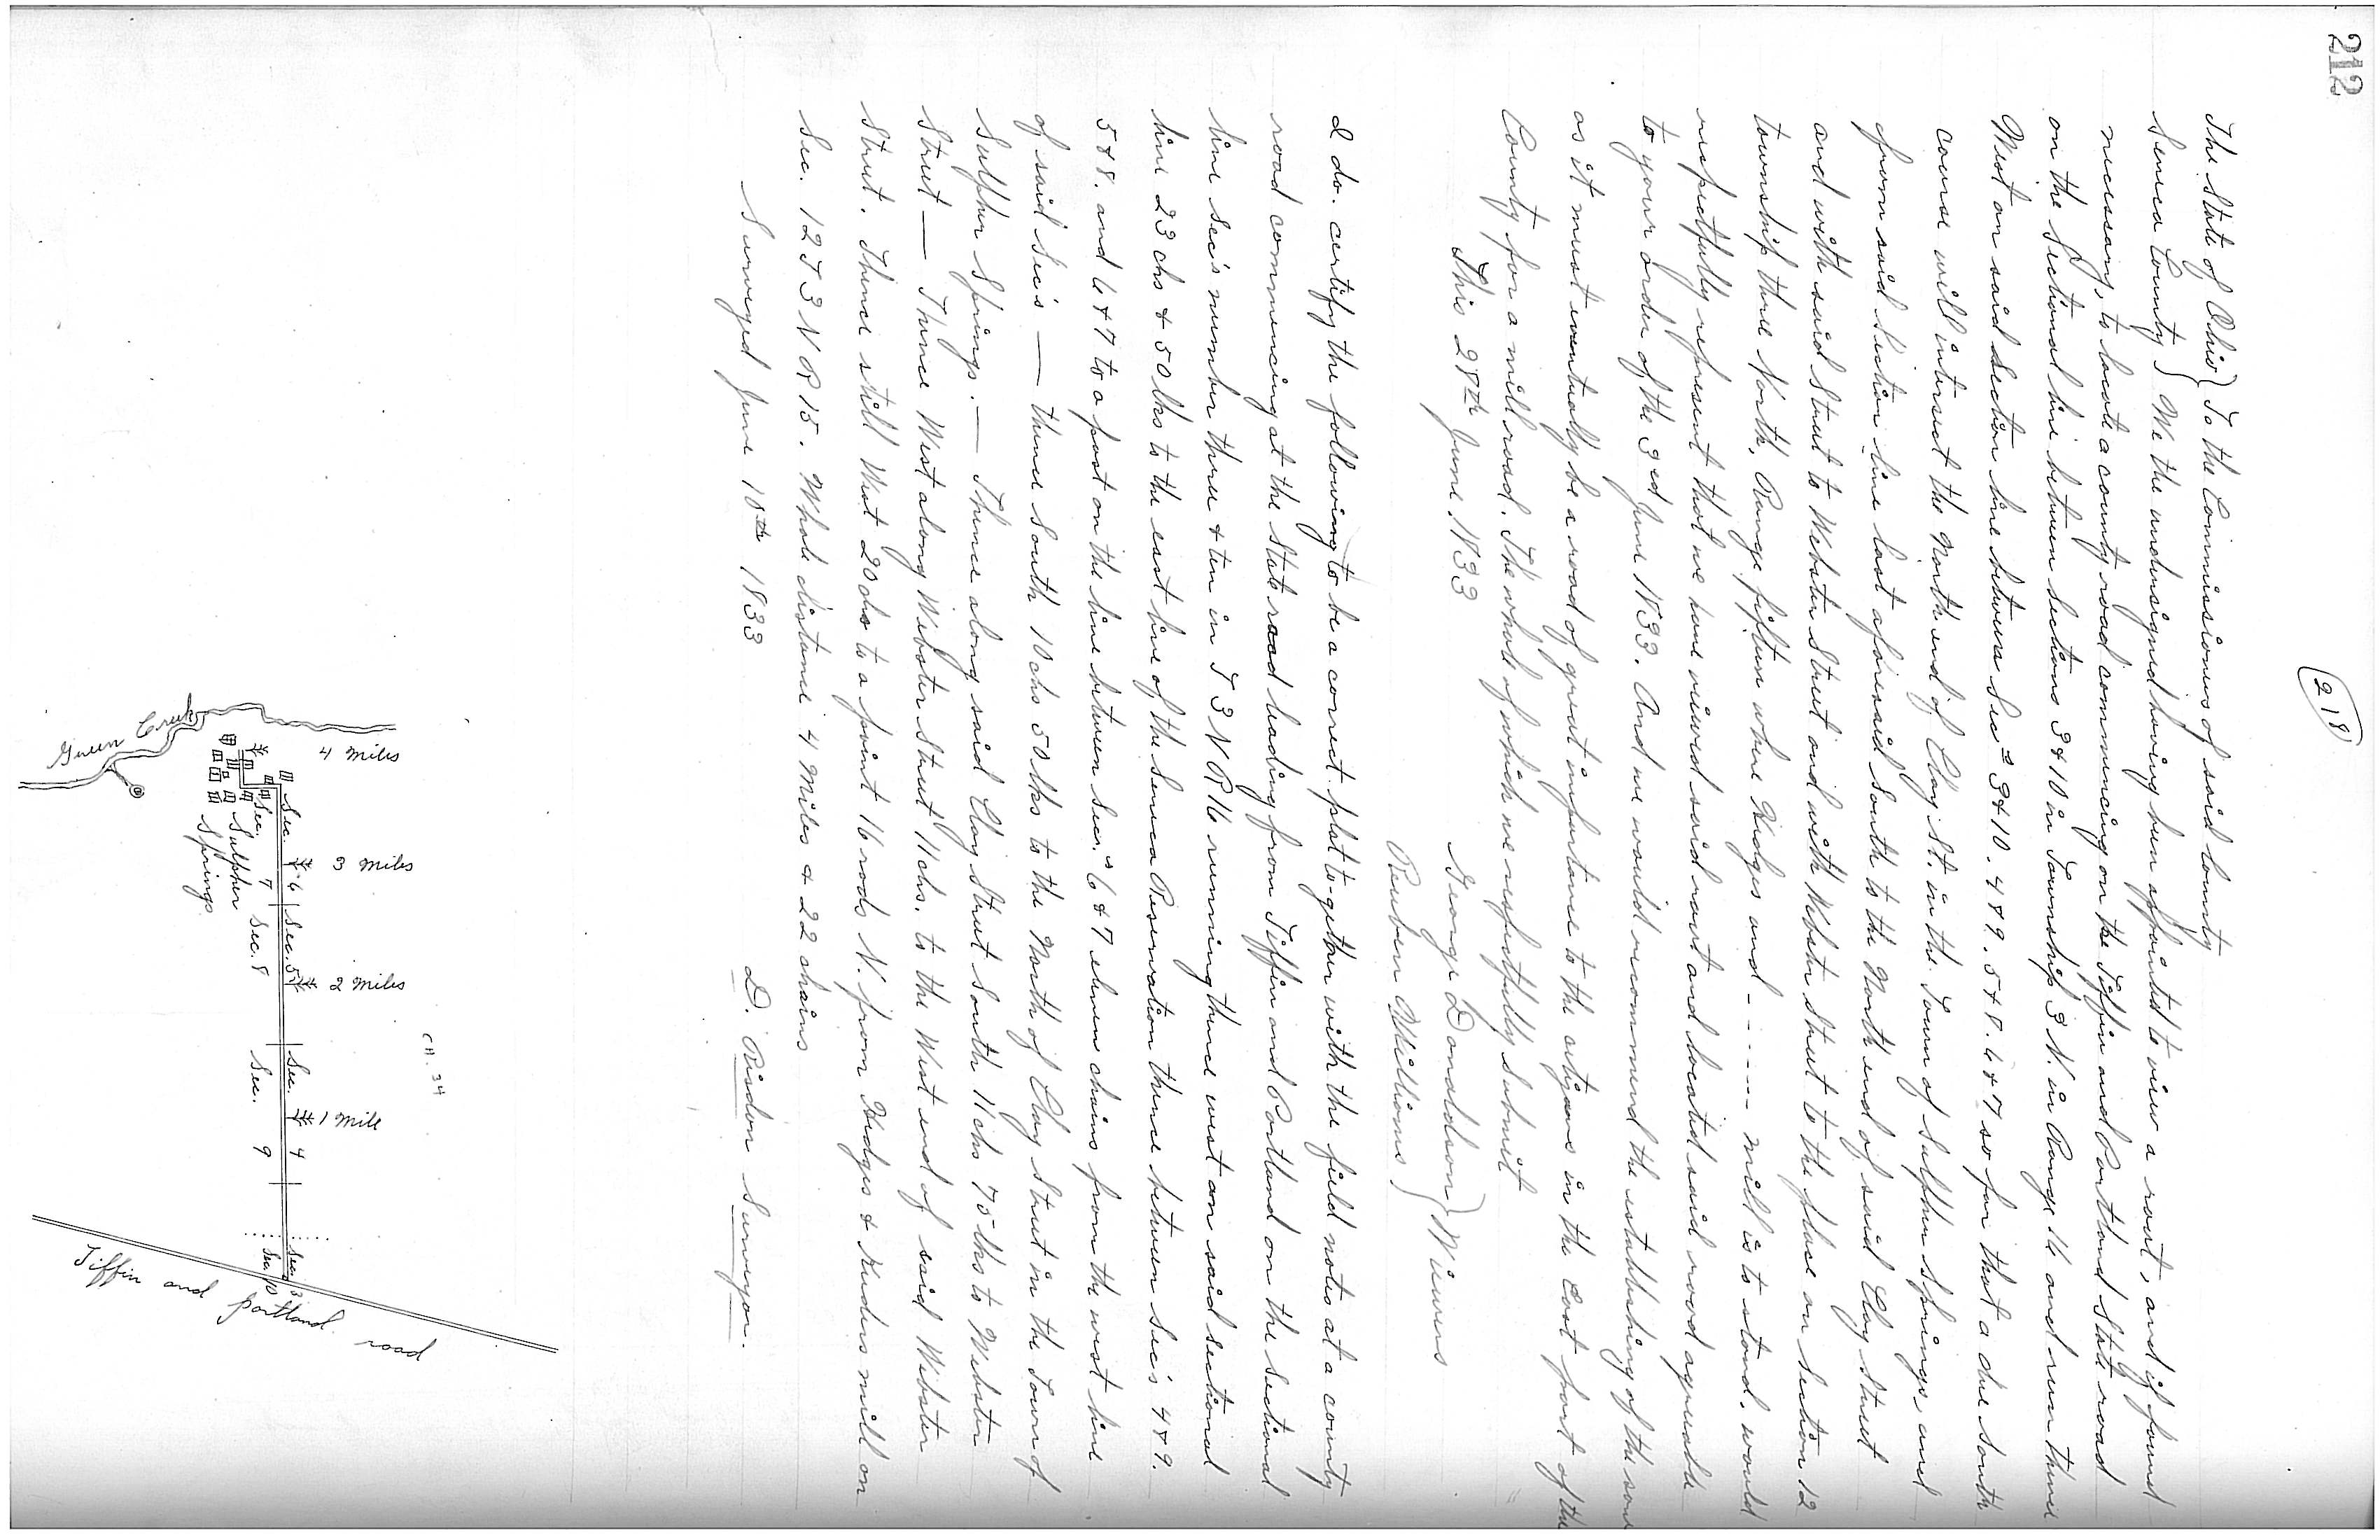 212
218
The State of Ohio } To the Commissioners of said County
Seneca County } We the undersigned having been appointed to view a rout, and if found
necessary, to locate a county road commencing on the Tiffin and Portland State road
on the Sectional line between Sections 3 & 10 in Township 3 N. in Range 16 and run thence
West on said Section line between Secs 3 & 10. 4 & 9. 5 & 8. 6 & 7 so far that a due South
course will intersect the North end of Clay St. in the Town of Sulpher Springs, and
from said Section line last aforesaid South to the North end of said Clay Street
and with said Street to Webster Street and with Webster Street to the place on Section 12
township three North, Range fifteen where Hedges and - - - - - mill is to stand. would
respectfully represent that we have viewed said rout and located said road agreeable
to your order of the 3rd June 1833. And we would recommend the establishing of the same
as it must eventually be a road of great importance to the citizens in the East part of the
County for a mill road. The whole of which we respectfully submit
This 28th June 1833
George Donaldson }
Reuben Williams } Viewers
I do. certify the following to be a correct plat to-gether with the field notes at a county
road commencing at the State road leading from Tiffin and Portland on the Sectional
line Sec's number three & ten in T 3 N R 16 running thence west on said Sectional
line 23 chs & 50 lks to the east line of the Seneca Reservation thence between Sec's 4 & 9.
5 & 8. and 6 & 7 to a post on the line between Sec.s 6 & 7 eleven chains from the west line
of said Sec's — thence South 10 chs 50 lks to the North of Clay Street in the Town of
Sulpher Springs. — Thence along said Clay Street South 11 chs 75 lks to Webster
Street — Thence West along Webster Street 11 chs. to the West end of said Webster
Street. Thence still West 20 chs to a point 16 rods N. from Hedges & mill on
Sec. 12 T 3 N R 15. Whole distance 4 Miles & 22 chains
Surveyed June 10th 1833
D. Risdon Surveyor.
CH. 34
4 Miles
3 Miles
2 Miles
1 Mile
Green Creek
Sec. 6
Sec. 5
Sec. 4
Sec. 3
Sec. 7
Sec. 8
Sec. 9
Sec. 10
Sulpher
Springs
Tiffin and Portland road